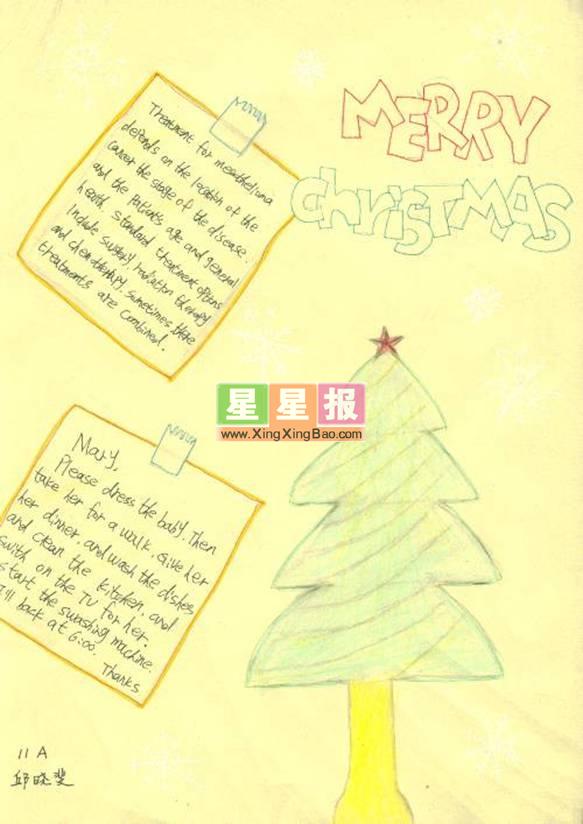 MERRY
chrisTMAS
Treatment for mesothelioma
depends on the location of the
cancer the stage of the disease.
and the patients age and general
health standard treatment options
Include surgery, radiation therapy
and chemotherapy. sometimes there
treatments are combined.
星星报
www.XingXingBao.com
Mary,
Please dress the baby. Then
take her for a walk. Give her
her dinner, and wash the dishes
and clean the kitchen, and
swith on the TV for her.
start the swashing machine.
I'll back at 6:00.
Thanks
11 A
邱晓斐